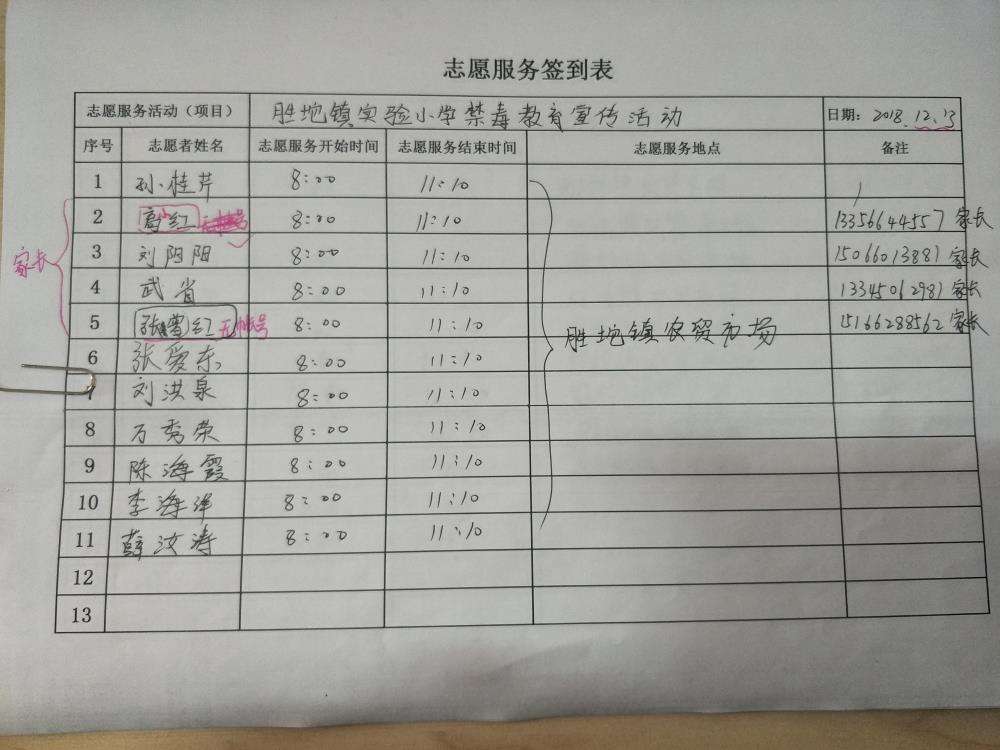 志愿服务签到表
志愿服务活动（项目） 胜坨镇实验小学禁毒教育宣传活动 日期：2018.12.13
序号 志愿者姓名 志愿服务开始时间 志愿服务结束时间 志愿服务地点 备注
1 孙桂芹 8:00 11:10
2 高红 8:00 11:10 13356644557 家长
3 刘阴阳 8:00 11:10 15066013881 家长
家长
4 武省 8:00 11:10 13345062981 家长
5 张曹红 无帐号 8:00 11:10 胜坨镇农贸市场 15166288562 家长
6 张爱东 8:00 11:10
7 刘洪泉 8:00 11:10
8 万秀荣 8:00 11:10
9 陈海霞 8:00 11:10
10 李海洋 8:00 11:10
11 薛汝涛 8:00 11:10
12
13